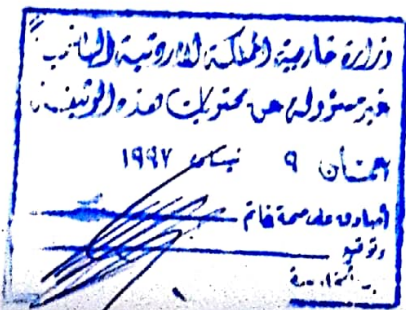 وزارة خارجية المملكة الاردنية الهاشمية
غير مسؤولة عن محتويات هذه الوثيقة
عمان ٩ نيسان ١٩٩٧
اصادق على صحة خاتم
وتوقيع